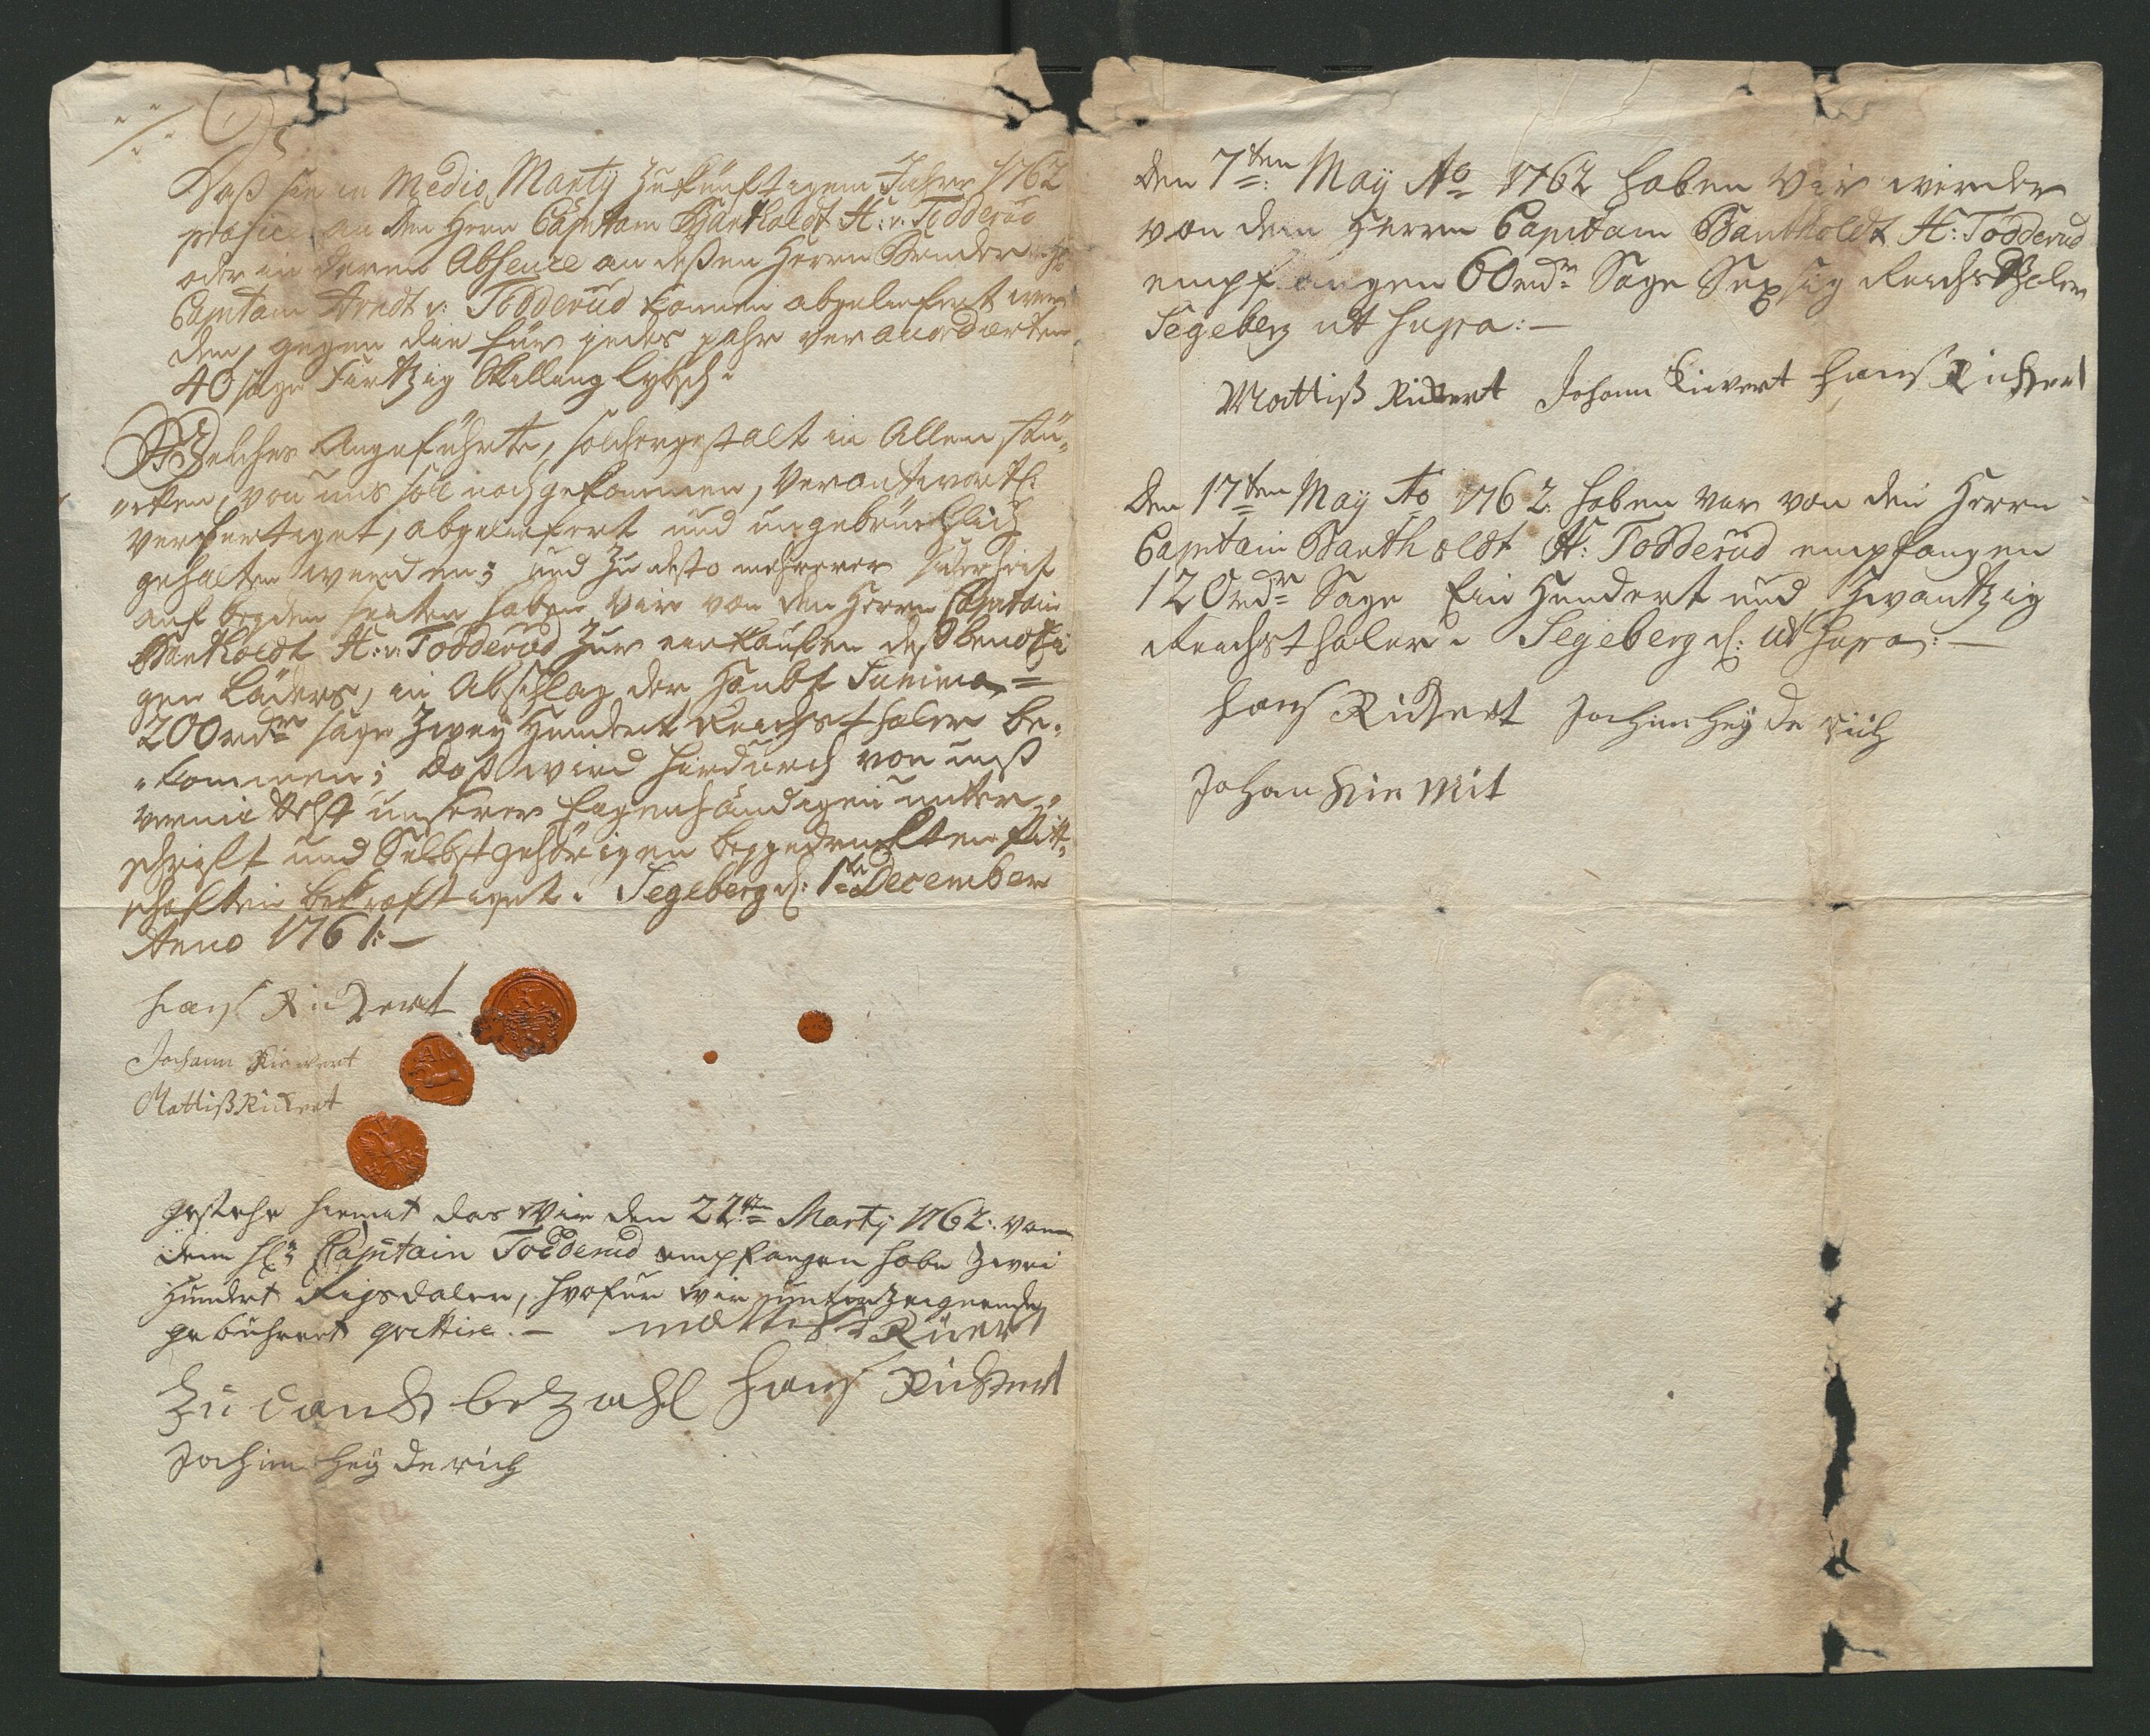 Daß sie in Medio Marty zukünftigem Jahres 1762
præsice an den Herrn Capitain Bartholdt H: v: Todderud
oder in deren Absence an deßen Herrn Bruder
Capitain Arndt v: Todderud können abgeliefert wer
den, gegen die für jedes pahr veraccordierten
40 sage Viertzig Skilling lybsch.
Welches Angeführte, solchergestalt in Allen stü-
cken, von uns soll nachgekommen, verantwortl:
verfertiget, abgeliefert und ungebrüchlich
gehalten werden; und zu desto mehrerer Sicherheit
auf beyden seiten haben Wir von den Herrn Capitain
Bartholdt H: v: Todderud zur einkaufen deß benöthi
gen Läders, in Abschlag der Haubt Summa =
200 rdr sage Zwey Hundert Reichsthaler be-
kommen; daß wird hirdurch von unß
vermittelst unserer Eigenhändigen unter-
schrifft und Selbstgehörigen beygedruckten Pitt-
schafften bekrafftiget. Segeberg d: 1te December
Anno 1761:
Hans Rickert
Johann Kiewert
Mattiß Rickert
gestehe hiemit das Wir den 22ten Marty 1762. von
dem Hr Capitain Todderud empfangen habe Zwei
Hundert Rigsdaler, hvofür wir unterzeignende
gebührent qvittire. Mattiß Rickert
Zu danck bezahl Hans Rickert
Jochim Heyderich
den 7ten May Ao 1762 haben Wir wieder
von dem Herrn Capitain Bartholdt H: Todderud
empfangen 60 rdr Sage Sexsig Reichsthaler
Segeberg ut supra:
Mattiß Rickert Johann Kiewert Hans Rickert
den 17ten May Ao 1762. haben Wir von den Herrn
Capitain Bartholdt H: Todderud empfangen
120 rdr Sage Ein Hundert und Zwantzig
Reichsthaler. Segeberg d: ut supra:
Hans Rickert Jochim Heyderich
Johan